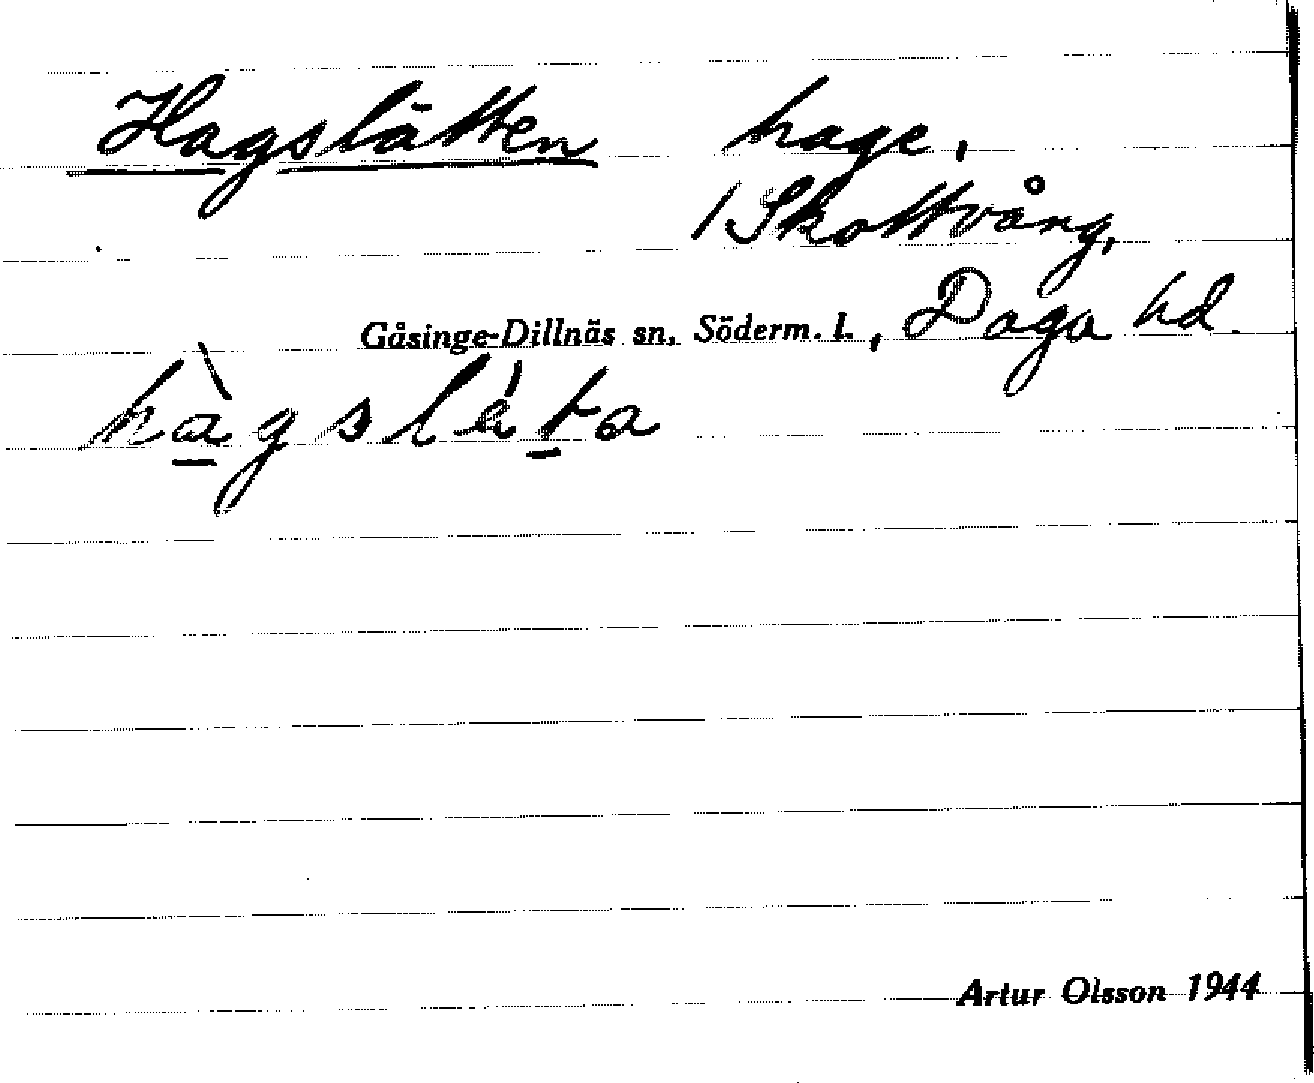 Hagslätten hage,
/Skottvång,
Gåsinge-Dillnäs sn, Söderm. l., Daga hd.
hàgsléta
Artur Olsson 1944